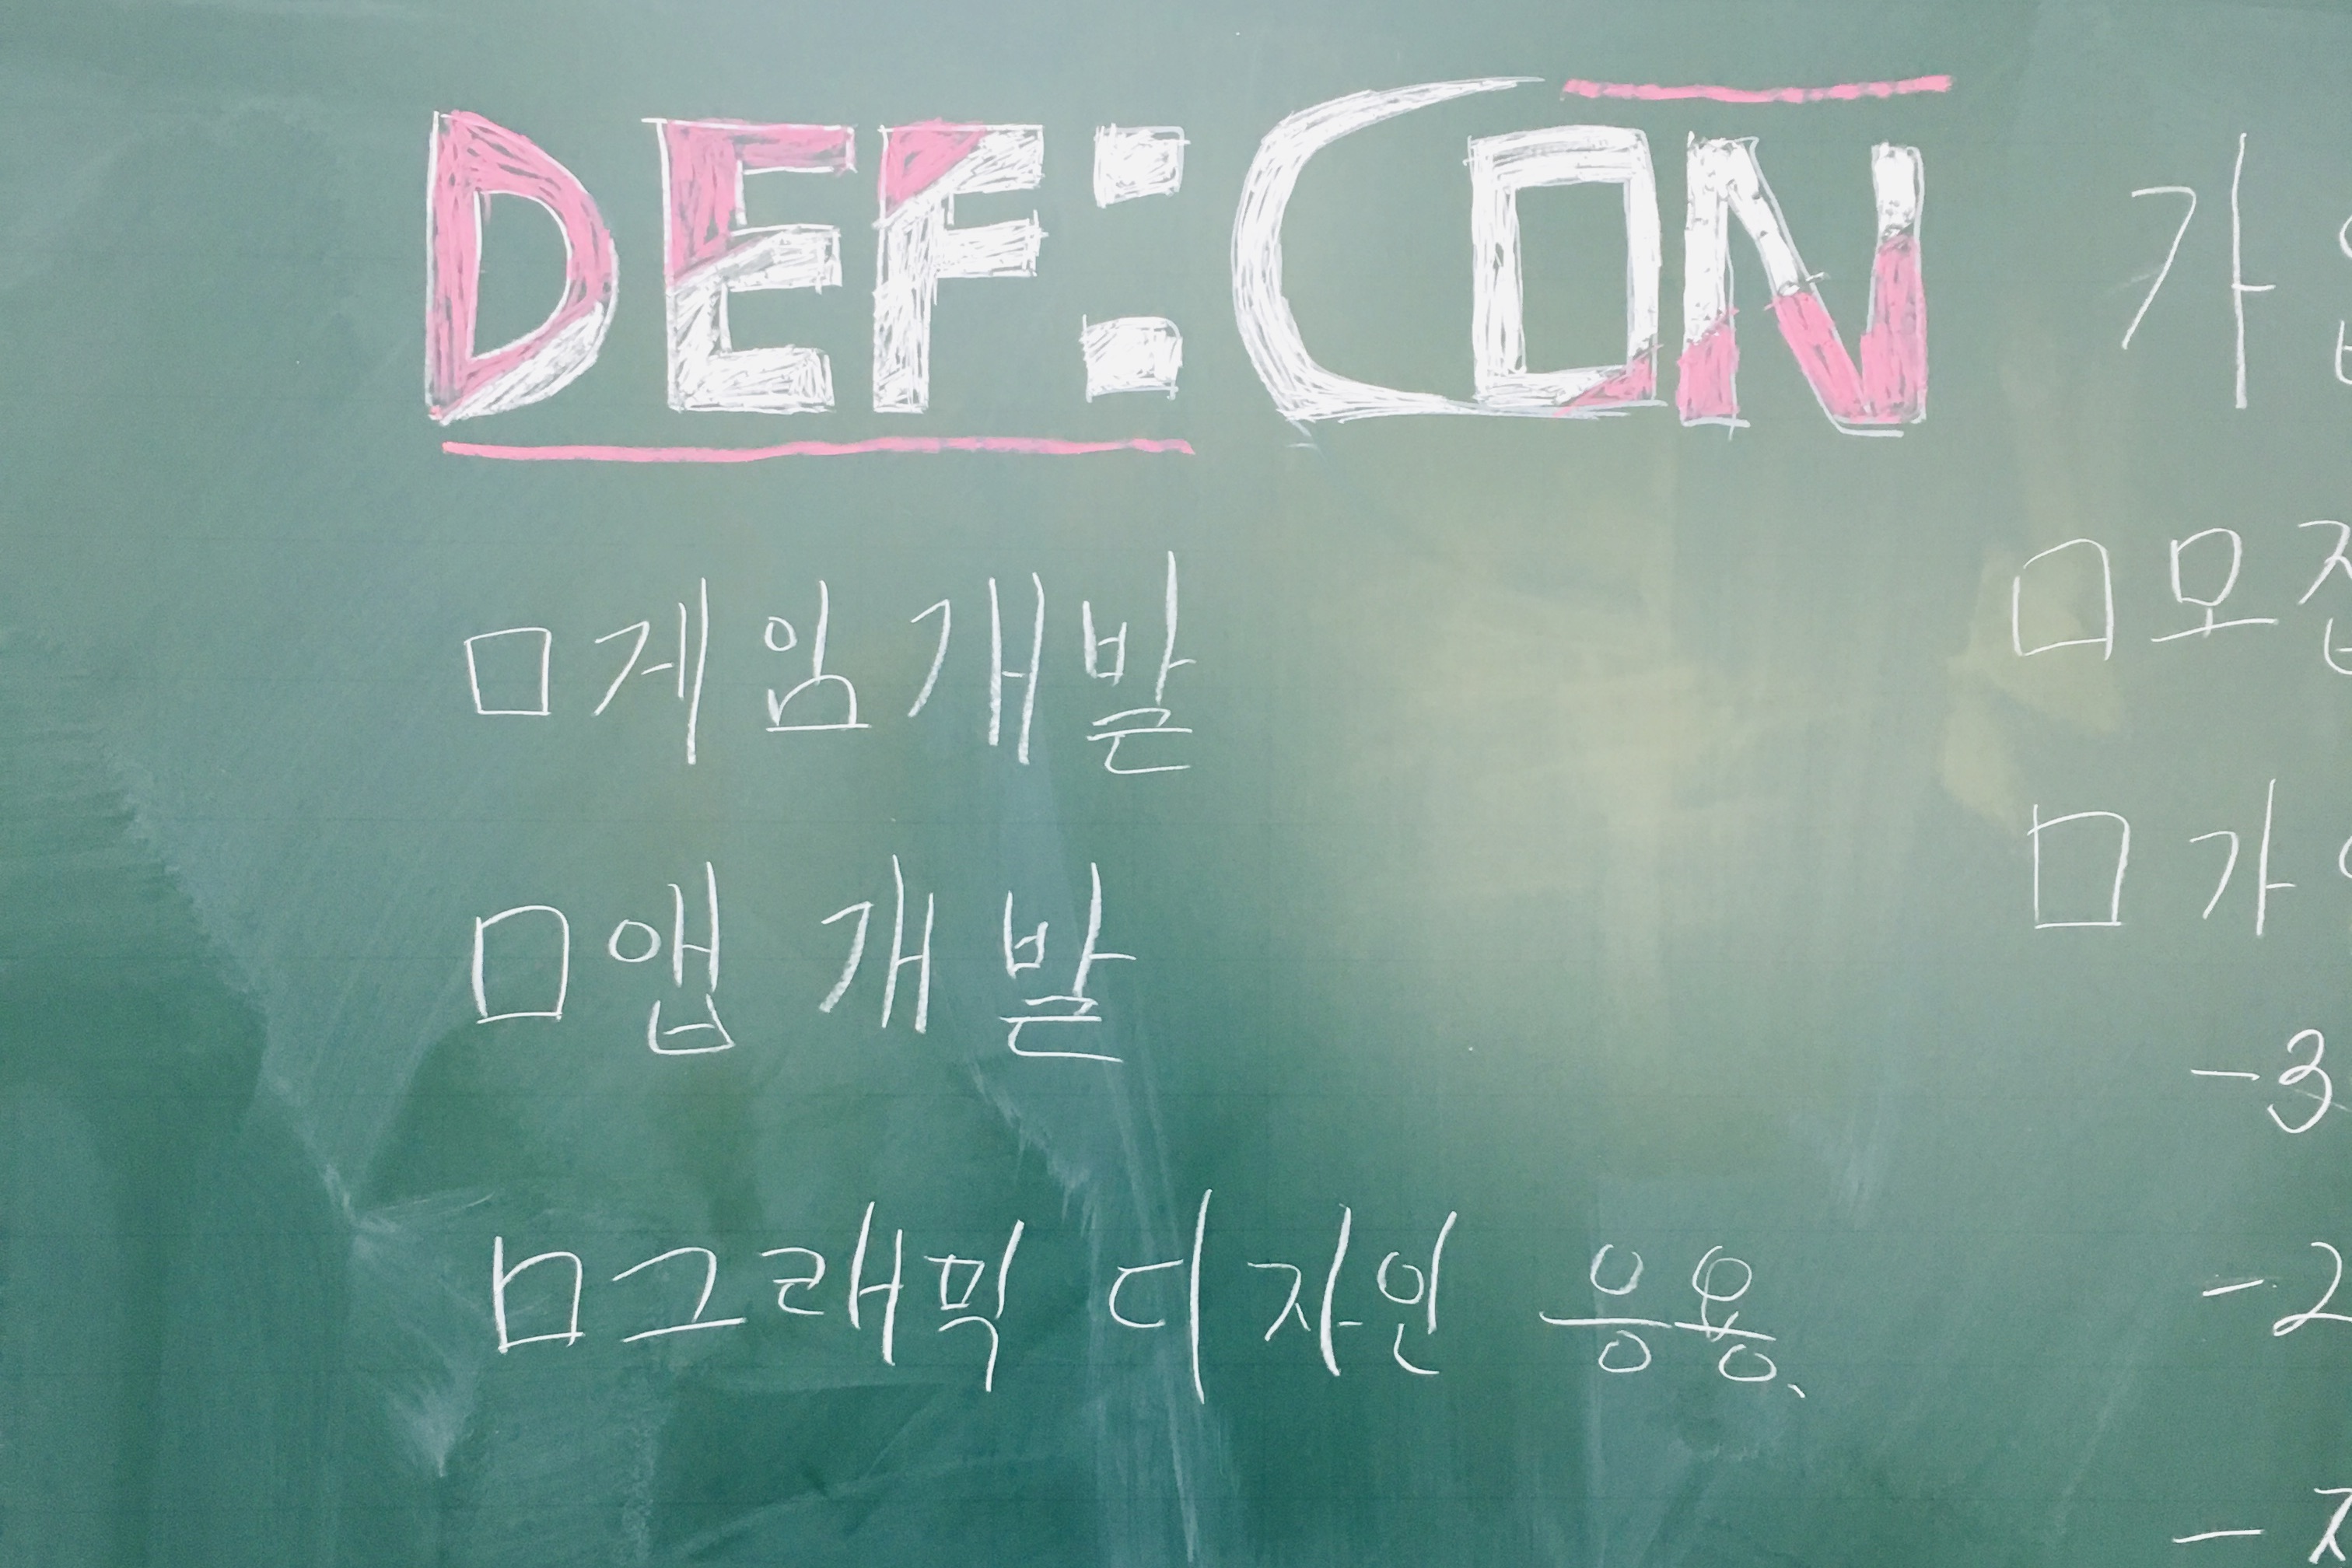 DEF:CON
□게임개발
□앱 개발
□그래픽 디자인 응용
가
□모집
□가
-3
-2